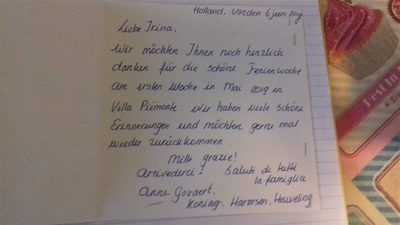 Holland, Vorden 6 juni 2019
Liebe Irina,
Wir möchten Ihnen noch herzlich
danken für die schöne Ferienwoche
am ersten Woche in Mai 2019 in
Villa Piemonte. Wir haben viele schöne
Erinnerungen und möchten gerne mal
wieder zurückkommen.
Mille grazie!
Arrivederci! Saluti di tutti
la famiglia
Anne Govaert,
Koning, Harmsen, Heuveling
Fest in